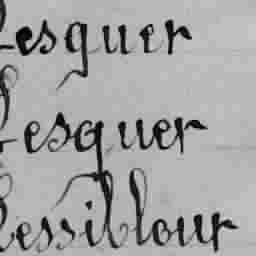 Lesquer
Lesquer
Kessillour